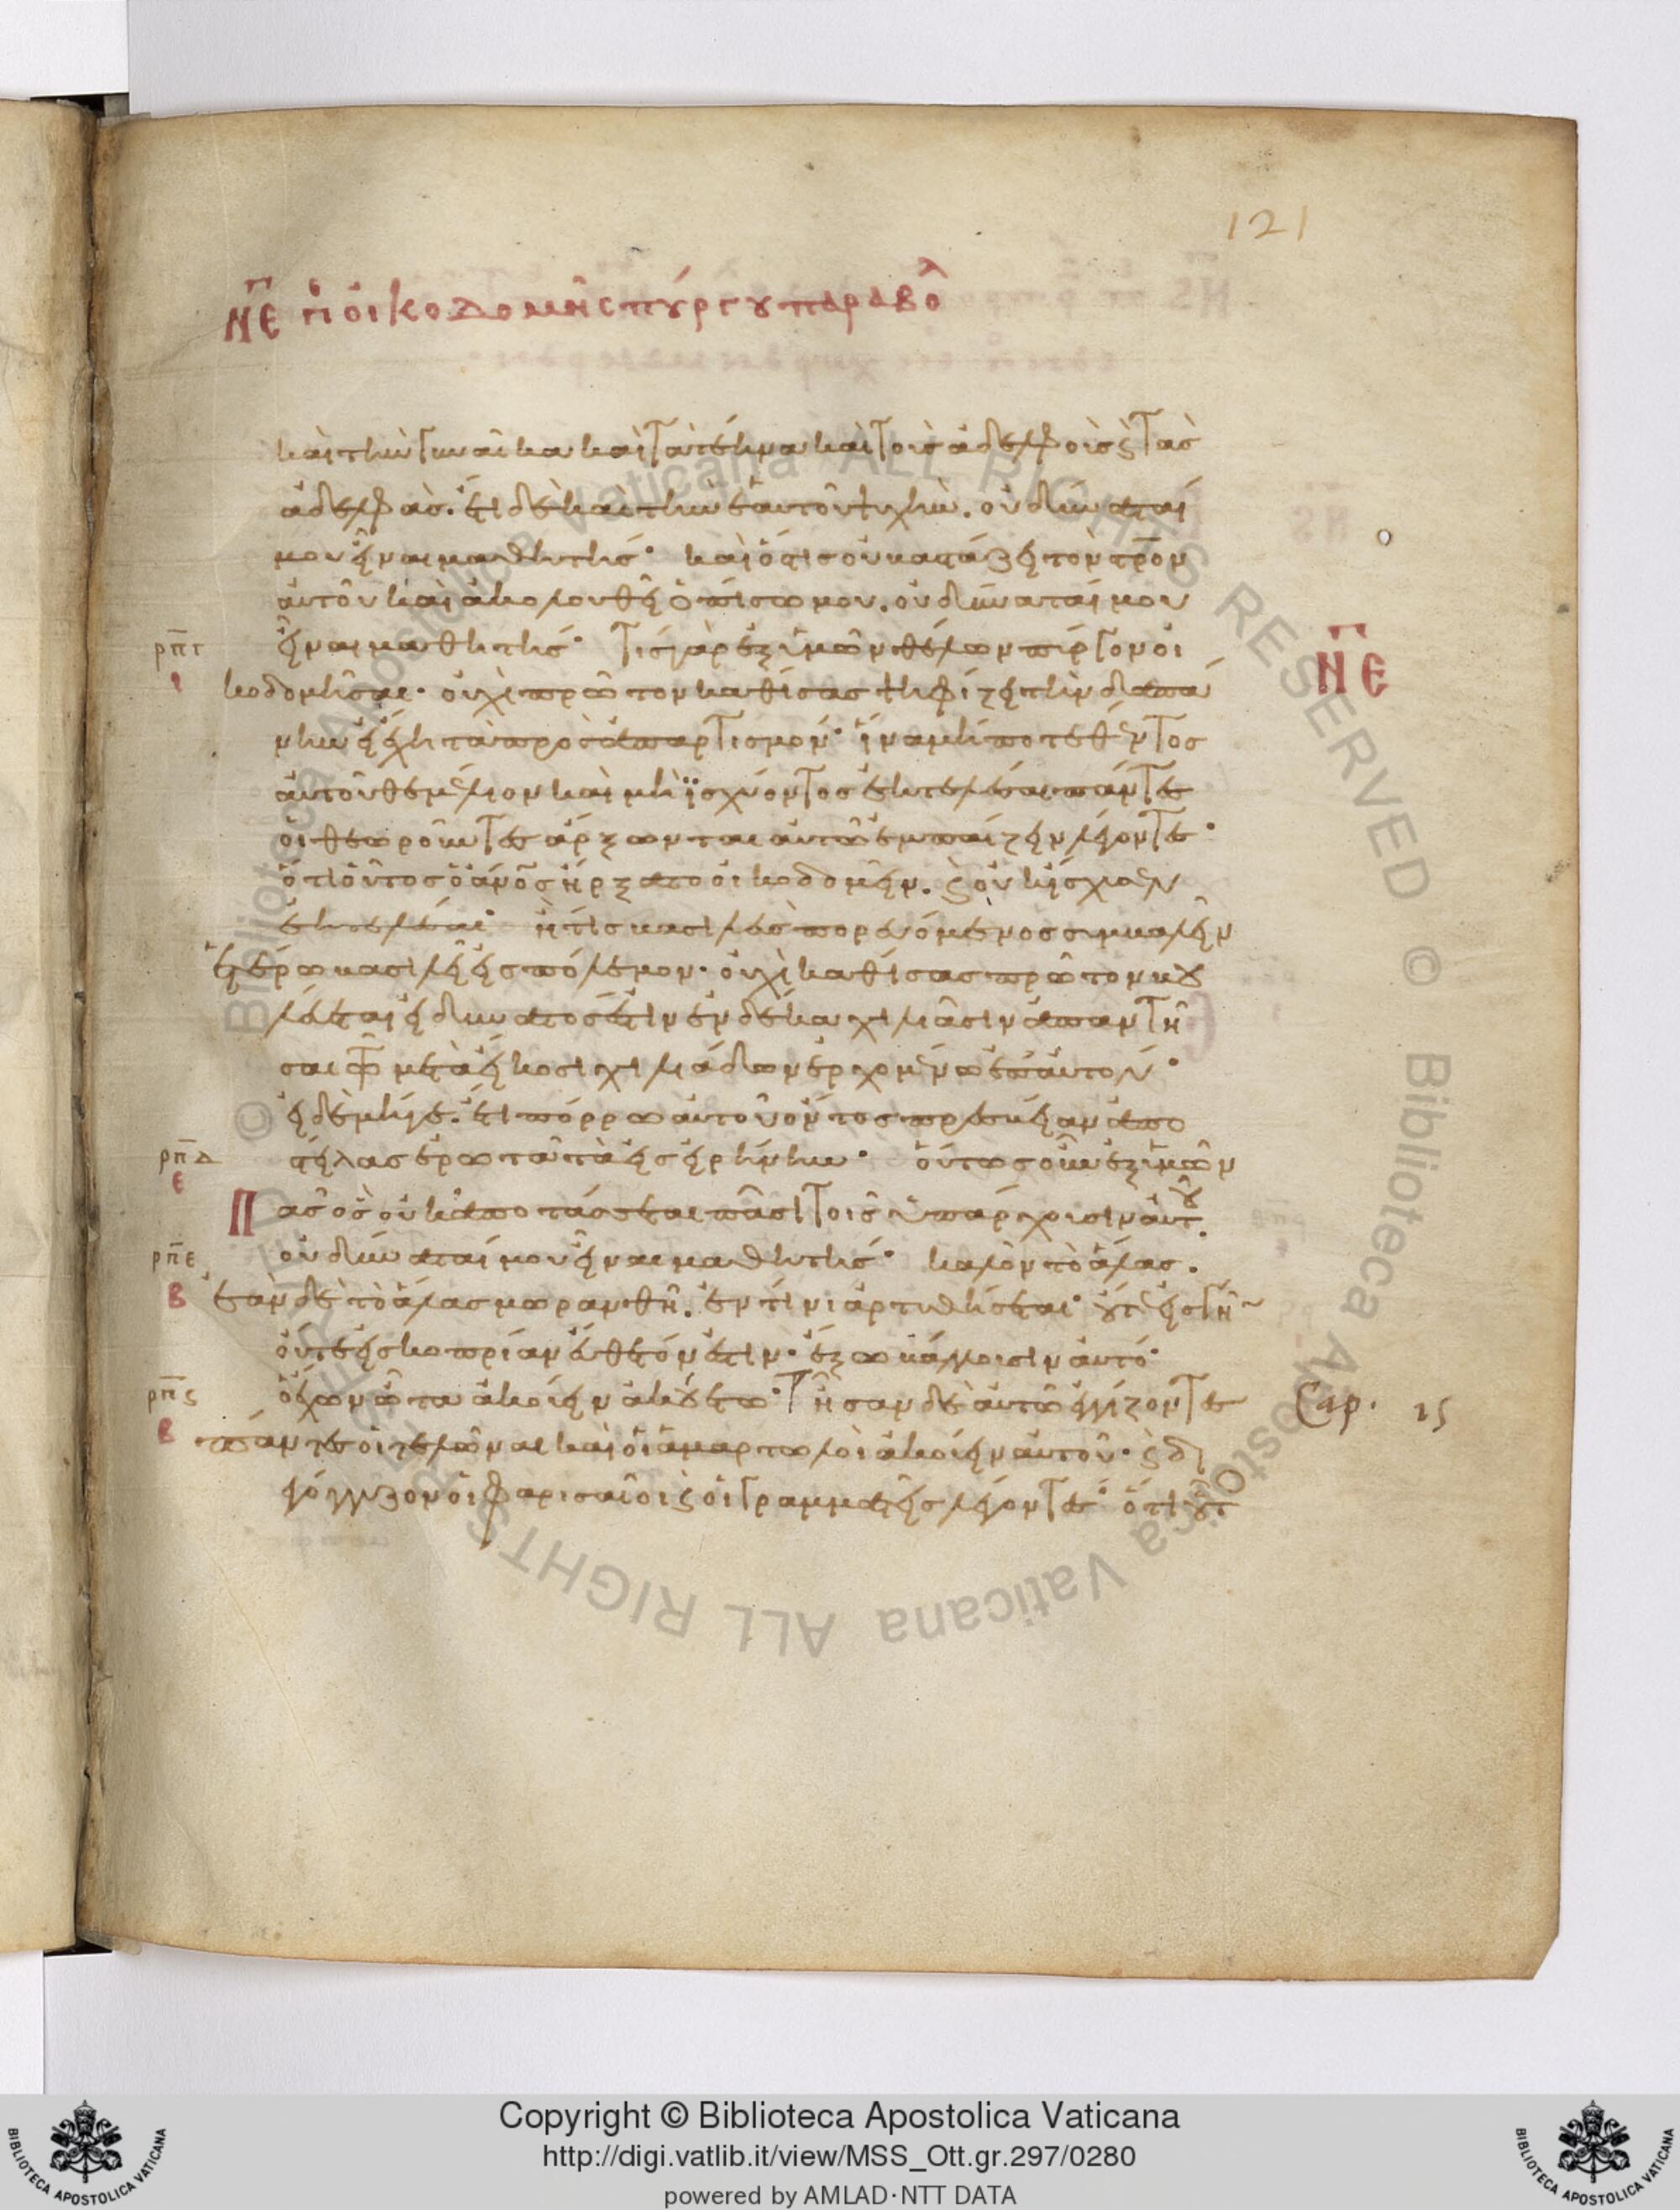 121
ΝΕ π οἰκοδομῆς πύργου παραβο^λ
καὶ τὴν γυναῖκα καὶ τὰ τέκνα καὶ τοὺς ἀδελφοὺς ϗ τὰς
ἀδελφάς. ἔτι δὲ καὶ τὴν ἑαυτοῦ ψυχήν. οὐ δύναταί
μου εἶναι μαθητής· καὶ ὅστις οὐ βαστάζει τὸν στρον
αὐτοῦ καὶ ἀκολουθεῖ ὀπίσω μου. οὐ δύναταί μου
ρπγ εἶναι μαθητής· τίς γὰρ ἐξ ὑμῶν θέλων πύργον οἰ
ΝΕ
κοδομῆσαι· οὐχὶ πρῶτον καθίσας ψηφίζει τὴν δαπά
νην εἰ ἔχει τὰ πρὸς ἀπαρτισμόν· ἵνα μήποτε θέντος
αὐτοῦ θεμέλιον καὶ μὴ ϊσχύοντος ἐκτελέσαι πάντες
οἱ θεωροῦντες ἄρξωνται αὐτῷ ἐμπαίζειν λέγοντες·
ὅτι οὗτος ὁ ἄνος ἤρξατο οἰκοδομεῖν. ϗ οὐκ ἴσχυσεν
ἐκτελέσαι· ἢ τίς βασιλεὺς πορευόμενος συμβαλεῖν
ἑτέρῳ βασιλεῖ εἰς πόλεμον· οὐχὶ καθίσας πρῶτον βου
λεύεται εἰ δυνατός ἐστιν ἐν δέκα χιλιάσιν ἀπαντῆ
σαι τῷ μετὰ εἴκοσι χιλιάδων ἐρχομένῳ ἐπ αὐτόν·
εἰ δὲ μήγε. ἔτι πόρρω αὐτοῦ ὄντος πρεσβείαν ἀπο
ρπδ στείλας ἐρωτᾷ τὰ εἰς εἰρήνην· οὕτως οὖν ἐξ ὑμῶν
ε
Πᾶς ὃς οὐκ ἀποτάσσεται πᾶσι τοῖς ὑπάρχουσιν αὐτοῦ.
ρπε οὐ δύναταί μου εἶναι μαθητής· καλὸν τὸ ἅλας.
β ἐὰν δὲ τὸ ἅλας μωρανθῇ. ἐν τίνι ἀρτυθήσεται· οὔτε εἰς γῆν
οὔτε εἰς κοπρίαν εὔθετόν ἐστιν· ἔξω βάλλουσιν αὐτό·
ρπς ὁ ἔχων ὦτα ἀκούειν ἀκουέτω· ἦσαν δὲ αὐτῷ ἐγγίζοντες
Cap. 15
β πάντες οἱ τελῶναι καὶ οἱ ἁμαρτωλοὶ ἀκούειν αὐτοῦ· ϗ δι
εγόγγυζον οἱ φαρισαῖοι ϗ οἱ γραμματεῖς λέγοντες· ὅτι οὗτ
Copyright © Biblioteca Apostolica Vaticana
http://digi.vatlib.it/view/MSS_Ott.gr.297/0280
powered by AMLAD·NTT DATA
BIBLIOTECA APOSTOLICA VATICANA
BIBLIOTECA APOSTOLICA VATICANA
© Biblioteca Apostolica Vaticana ALL RIGHTS RESERVED © Biblioteca Apostolica Vaticana ALL RIGHTS RESERVED